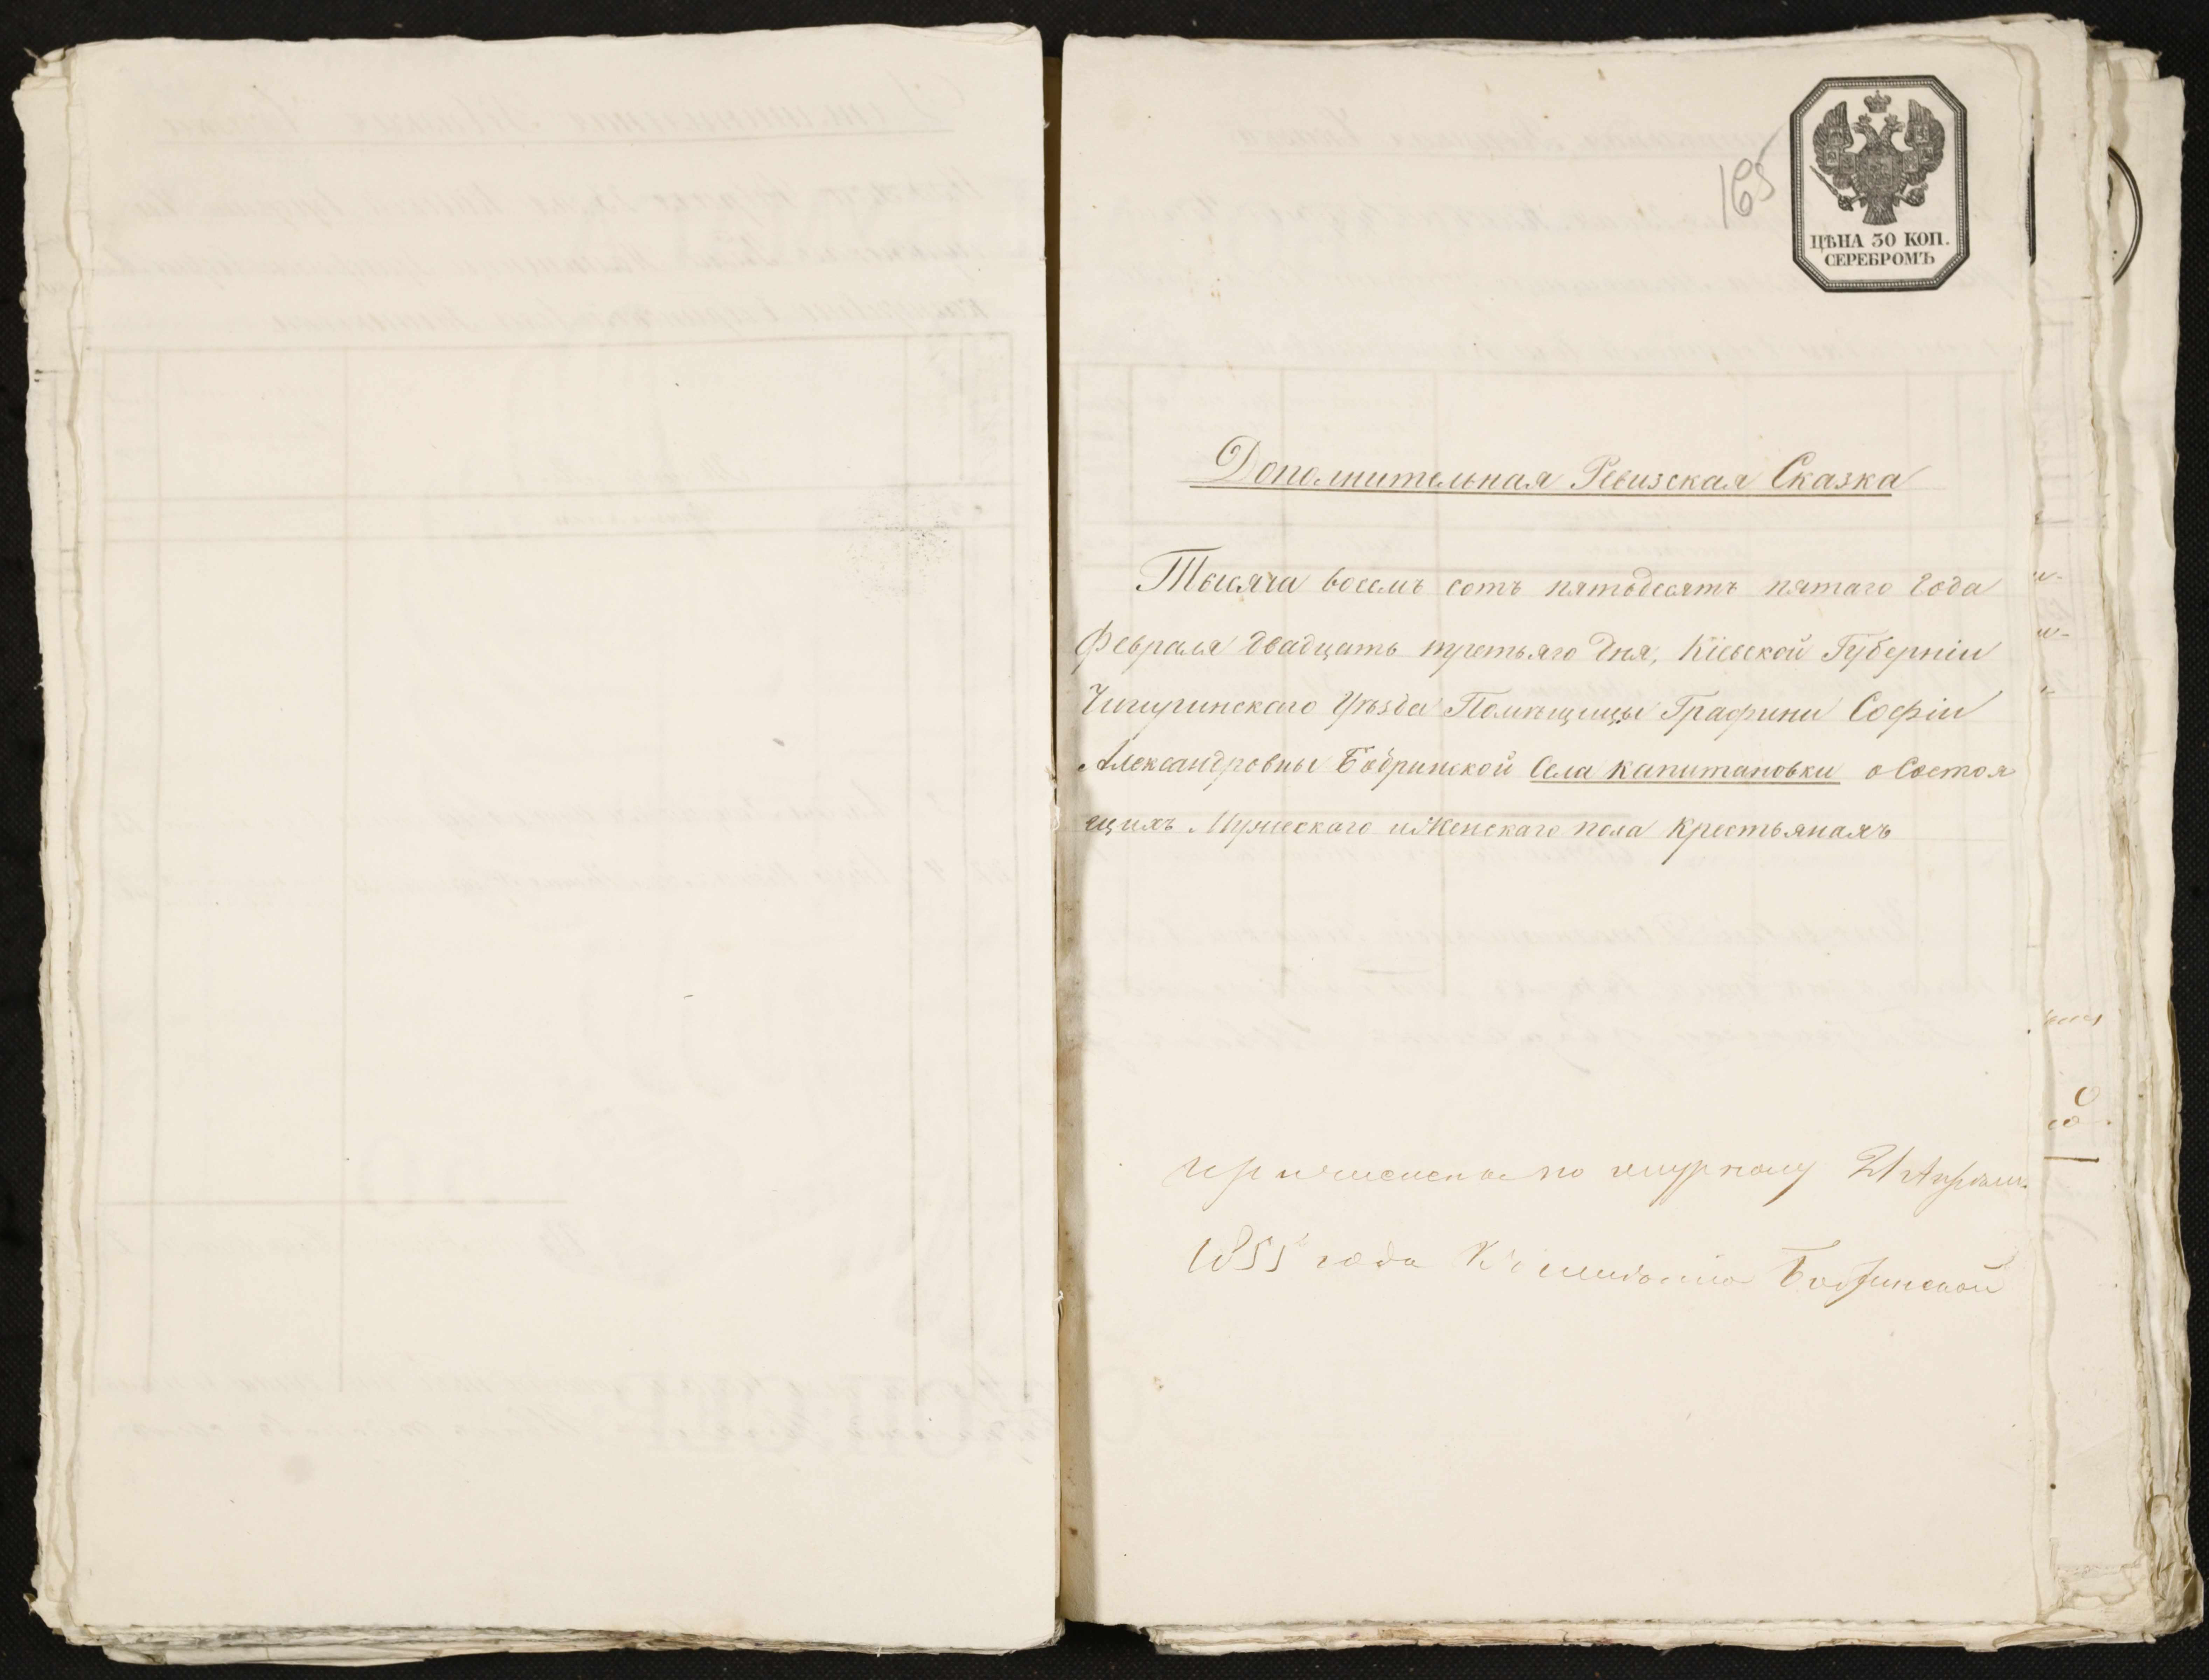 165
ЦѢНА 30 КОП.
СЕРЕБРОМЪ
Дополнительная Ревизская Сказка
Тысяча восемь сотъ пятьдесятъ пятаго года
Февраля двадцать третьяго дня, Кіевской Губерніи
Чигиринскаго Уѣзда Помѣщицы Графини Софіи
Александровны Бобринской Села Капитановки о Состоя
щихъ Мужескаго и Женскаго пола Крестьянахъ
по журналу 21 Апрѣля
1855 года Бобринской